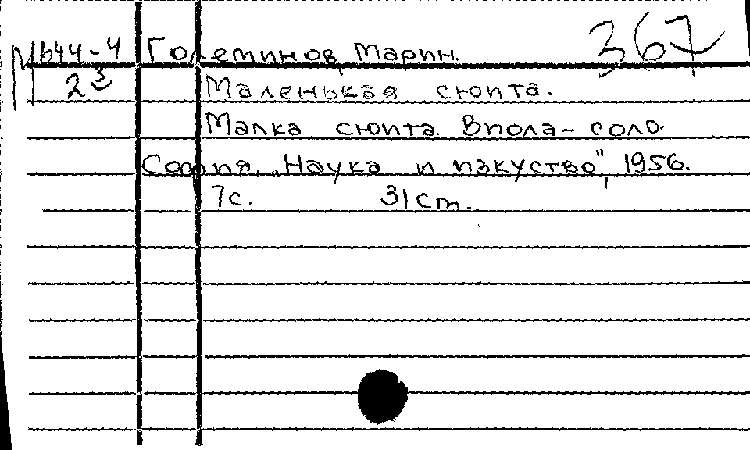 М644-4 Големинов, Марин. 367
2³ Маленькая сюита.
Малка сюита. Виола-соло.
София, „Наука и изкуство", 1956.
7с. 31см.